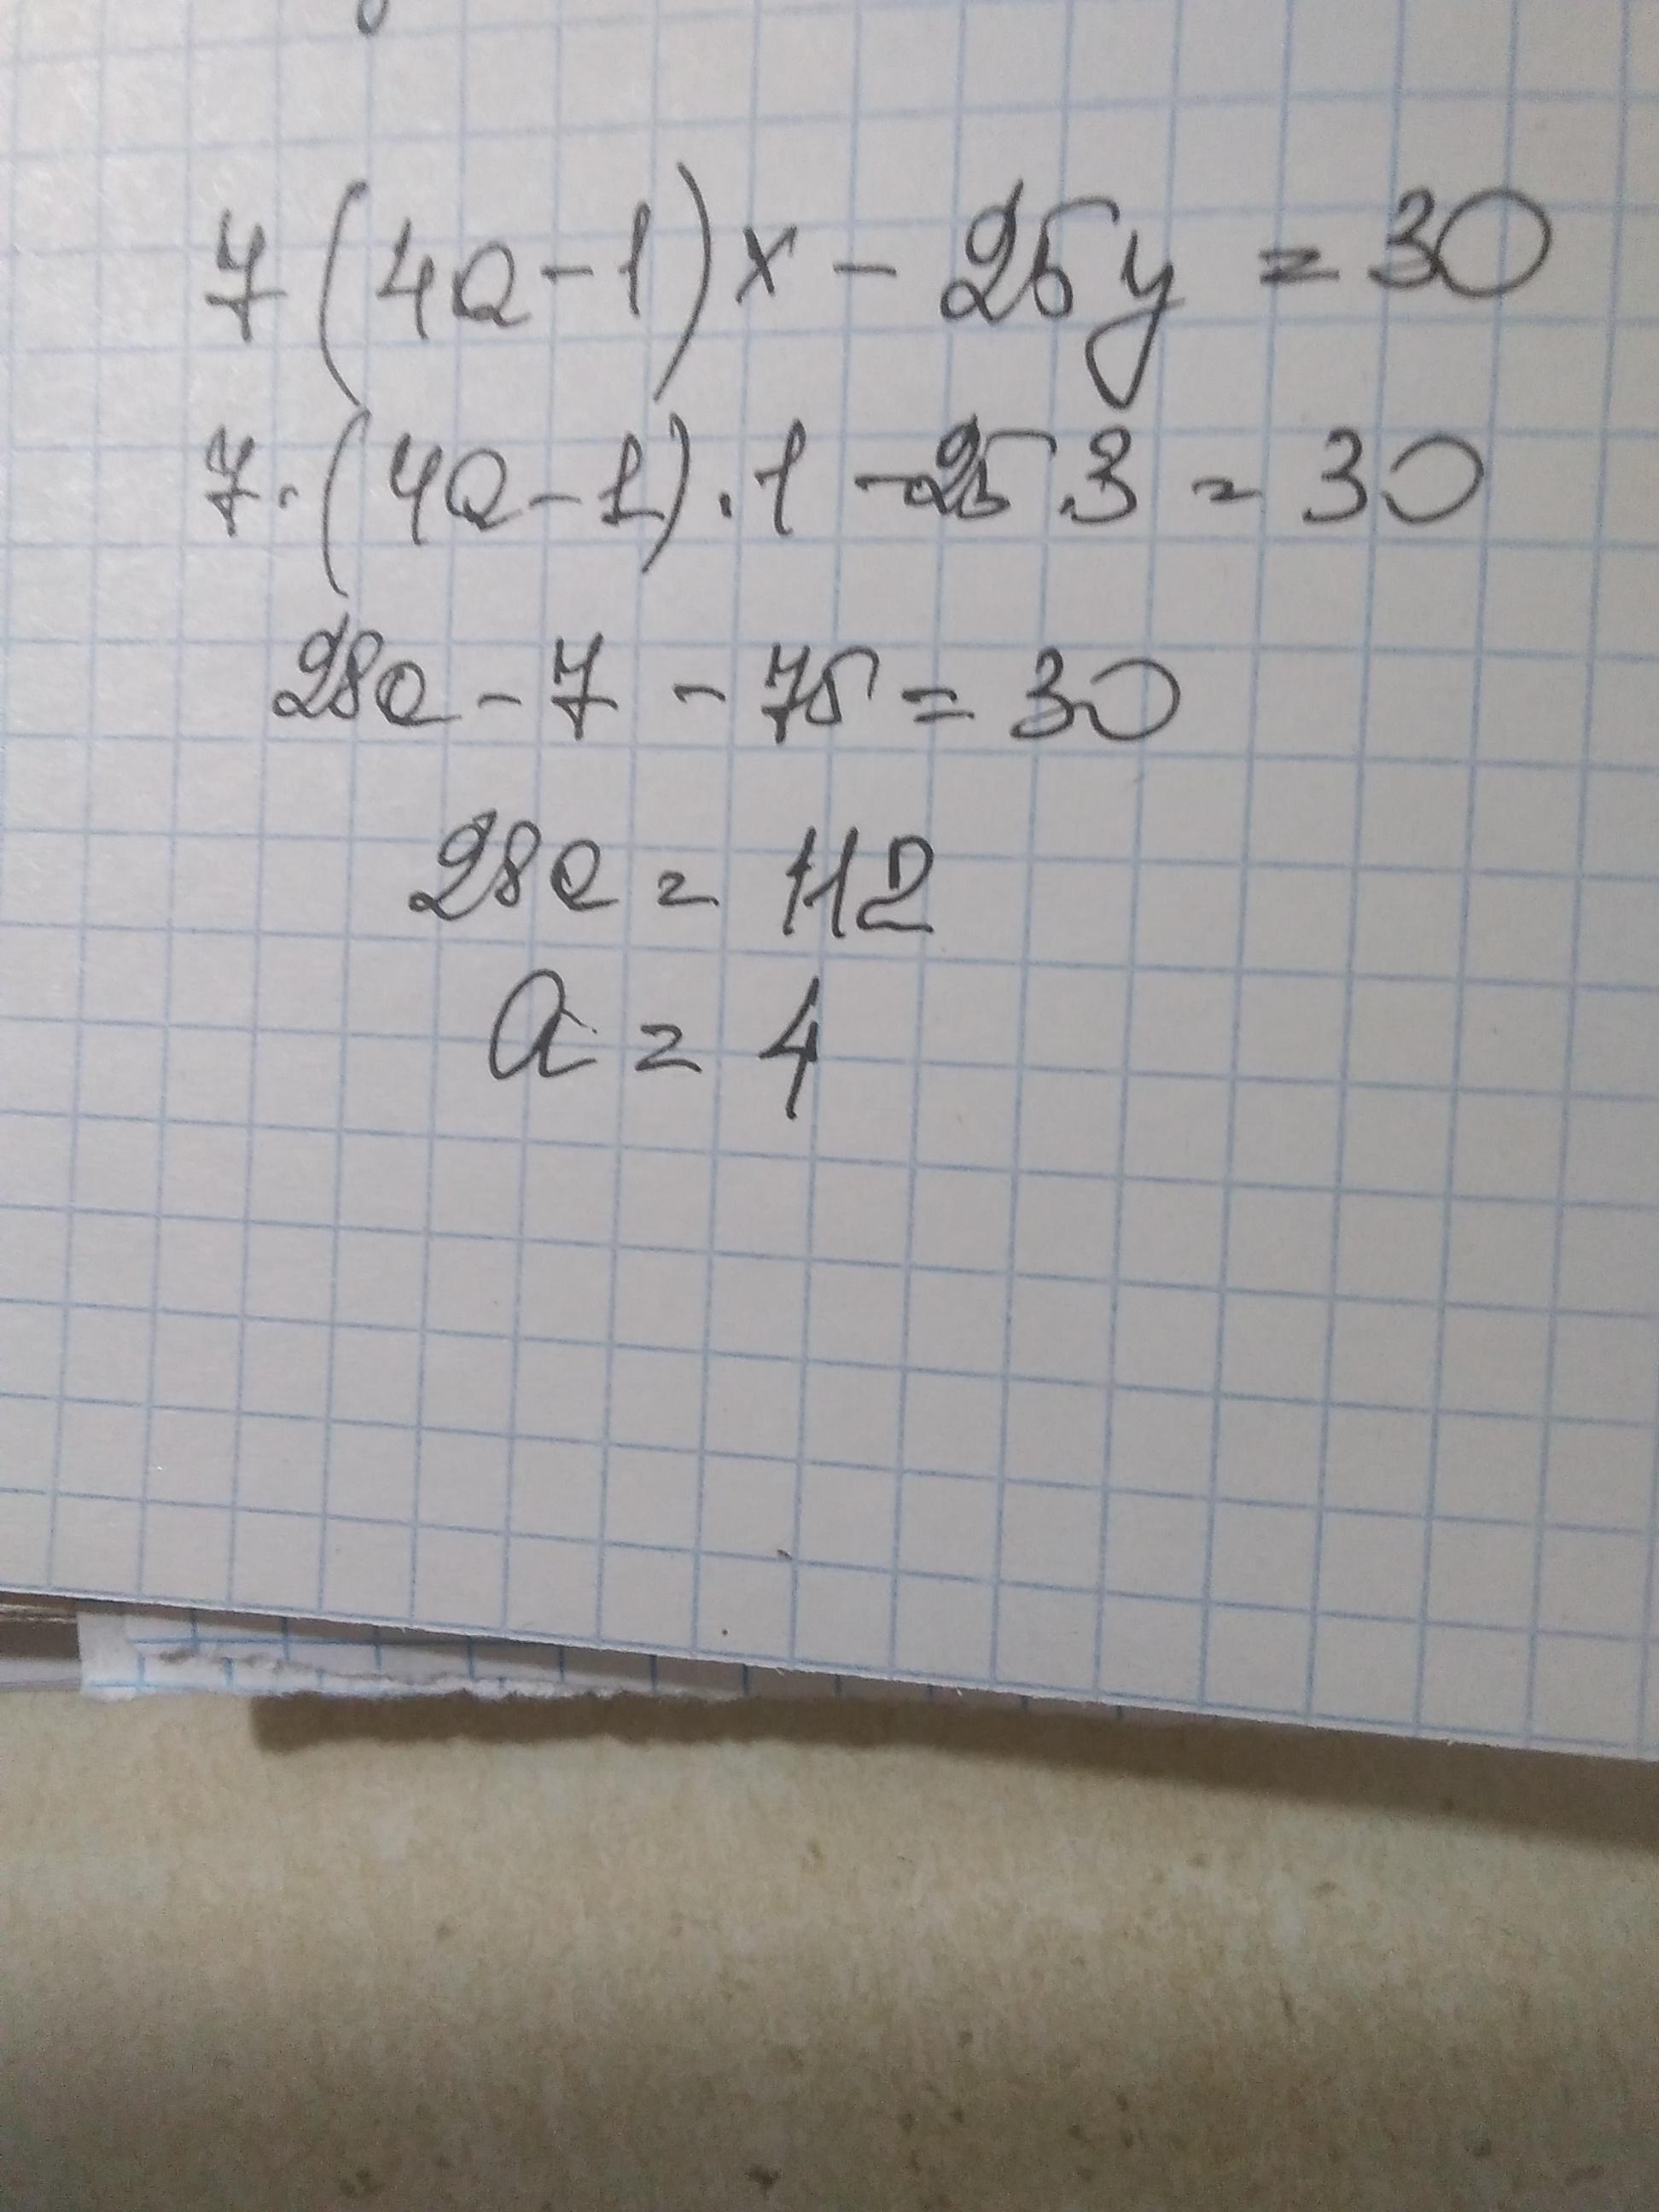 7(4a-1)x - 25y = 30
7·(4a-1)·1 - 25·3 = 30
28a - 7 - 75 = 30
28a = 112
a = 4